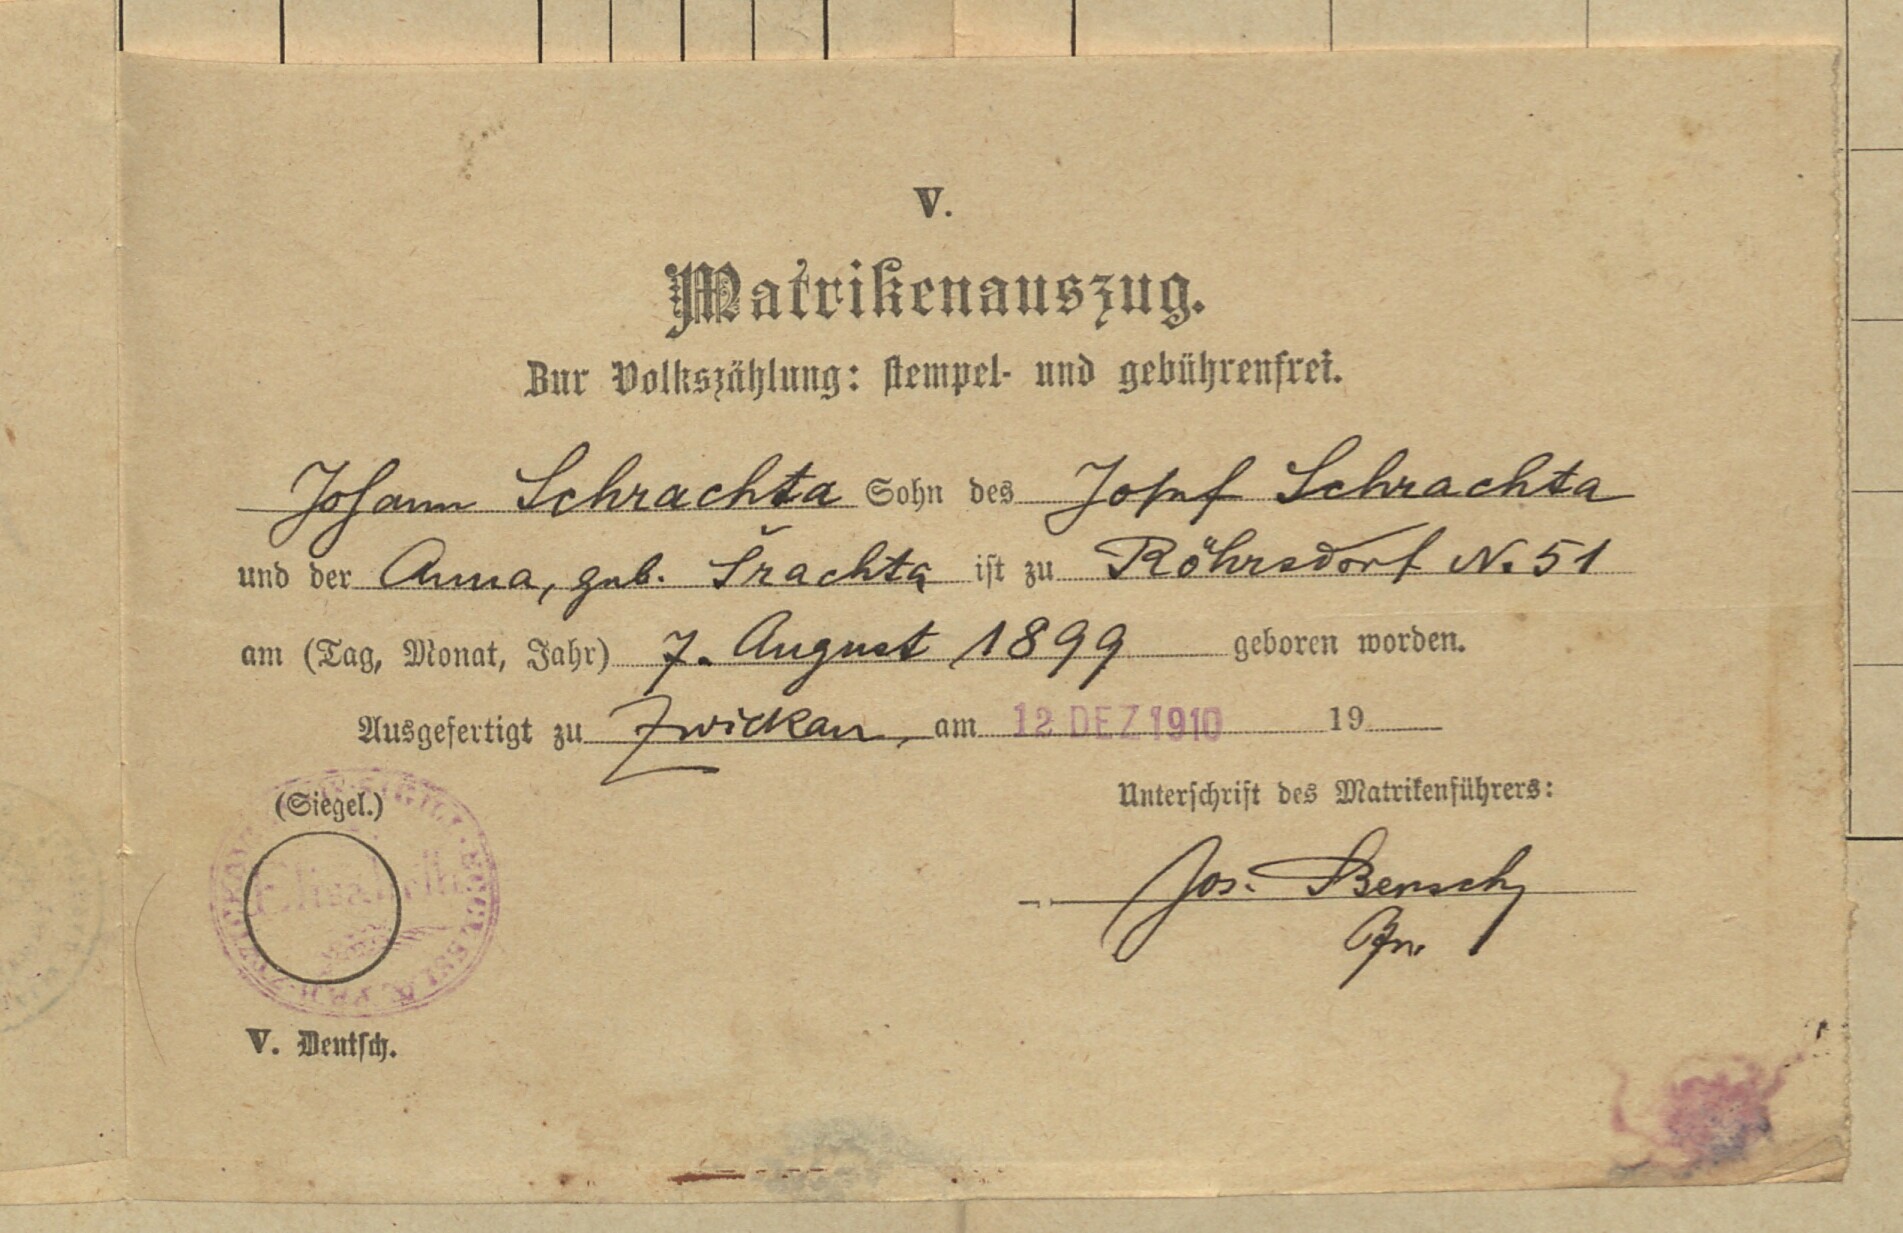 V.
Matrikenauszug.
Zur Volkszählung: stempel- und gebührenfrei.
Johann Schrachta Sohn des Josef Schrachta
und der Anna, geb. Šrachta ist zu Röhrsdorf N. 51
am (Tag, Monat, Jahr) 7. August 1899 geboren worden.
Ausgefertigt zu Zwickau, am 12 DEZ 1910 19
(Siegel.)
Unterschrift des Matrikenführers:
Jos. Bensch
V. Deutsch.